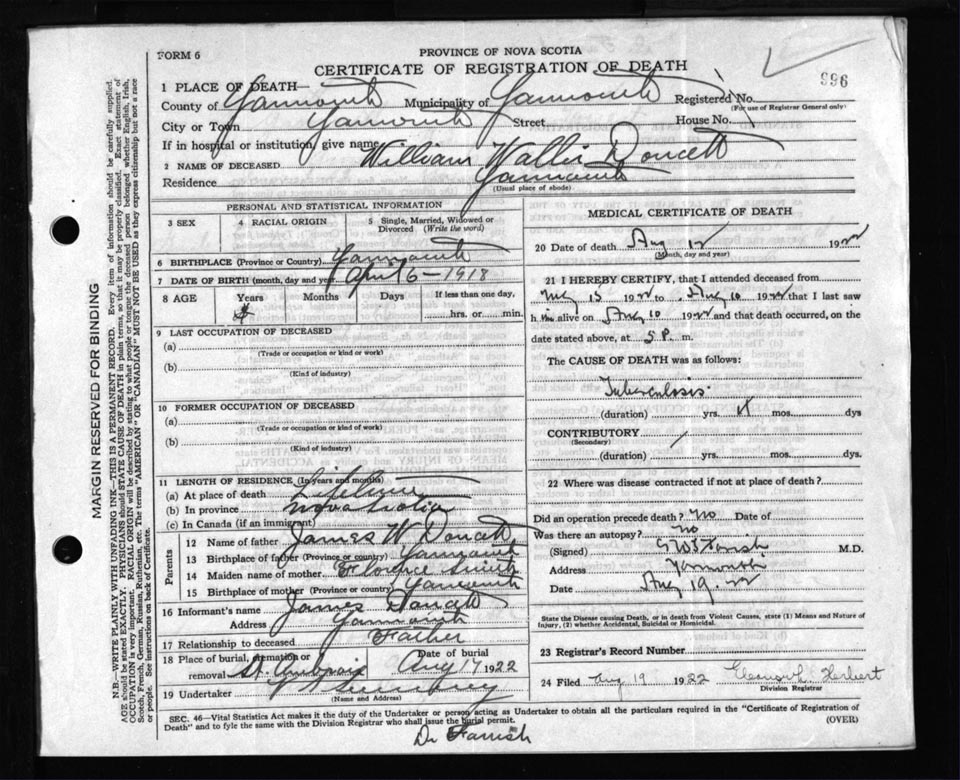 FORM 6
PROVINCE OF NOVA SCOTIA
CERTIFICATE OF REGISTRATION OF DEATH
996
1 PLACE OF DEATH—
County of Yarmouth Municipality of Yarmouth Registered No.
(For use of Registrar General only)
City or Town Yarmouth Street House No.
If in hospital or institution, give name
2 NAME OF DECEASED William Wallis Doucett
Residence Yarmouth
(Usual place of abode)
PERSONAL AND STATISTICAL INFORMATION
3 SEX
4 RACIAL ORIGIN
5 Single, Married, Widowed or Divorced (Write the word)
6 BIRTHPLACE (Province or Country) Yarmouth
7 DATE OF BIRTH (month, day and year) April 6–1918
8 AGE Years Months Days If less than one day,
4 hrs. or min.
9 LAST OCCUPATION OF DECEASED
(a)
(Trade or occupation or kind or work)
(b)
(Kind of industry)
10 FORMER OCCUPATION OF DECEASED
(a)
(Trade or occupation or kind of work)
(b)
(Kind of industry)
11 LENGTH OF RESIDENCE (In years and months)
(a) At place of death Lifetime
(b) In province Nova Scotia
(c) In Canada (if an immigrant)
Parents
12 Name of father James W Doucett
13 Birthplace of father (Province or country) Yarmouth
14 Maiden name of mother Florence
15 Birthplace of mother (Province or Country) Yarmouth
16 Informant's name James Doucett
Address Yarmouth
17 Relationship to deceased Father
18 Place of burial, cremation or removal St. Ambrois Date of burial Aug 17 1922
19 Undertaker
(Name and Address)
MEDICAL CERTIFICATE OF DEATH
20 Date of death Aug 12 1922
(Month, day and year)
21 I HEREBY CERTIFY, that I attended deceased from
July 15 1922 to Aug 10 1922 that I last saw
him alive on Aug 10 1922 and that death occurred, on
date stated above, at 5 P. m.
The CAUSE OF DEATH was as follows:
Tuberculosis
(duration) yrs. mos. dys
CONTRIBUTORY
(Secondary)
(duration) yrs. mos. dys
22 Where was disease contracted if not at place of death?
Did an operation precede death? No Date of
Was there an autopsy? No
(Signed) Farish M.D.
Address Yarmouth
Date Aug 19. 22
State the Disease causing Death, or in death from Violent Causes, state (1) Means and Nature of Injury, (2) whether Accidental, Suicidal or Homicidal.
23 Registrar's Record Number
24 Filed Aug 19 1922 Herbert
Division Registrar
SEC. 46—Vital Statistics Act makes it the duty of the Undertaker or person acting as Undertaker to obtain all the particulars required in the "Certificate of Registration of
Death" and to fyle the same with the Division Registrar who shall issue the burial permit. (OVER)
Dr Farish
MARGIN RESERVED FOR BINDING
N.B.—WRITE PLAINLY WITH UNFADING INK—THIS IS A PERMANENT RECORD. Every item of information should be carefully supplied.
AGE should be stated EXACTLY. PHYSICIANS should STATE CAUSE OF DEATH in plain terms, so that it may be properly classified. Exact statement of
OCCUPATION is very important. RACIAL ORIGIN will be described by stating to what people or tongue the deceased person belonged whether English, Irish,
Scotch, French, German, Russian, Ruthenian, etc. The terms "AMERICAN" OR "CANADIAN" MUST NOT BE USED as they express citizenship but not a race
or people. See instructions on back of Certificate.